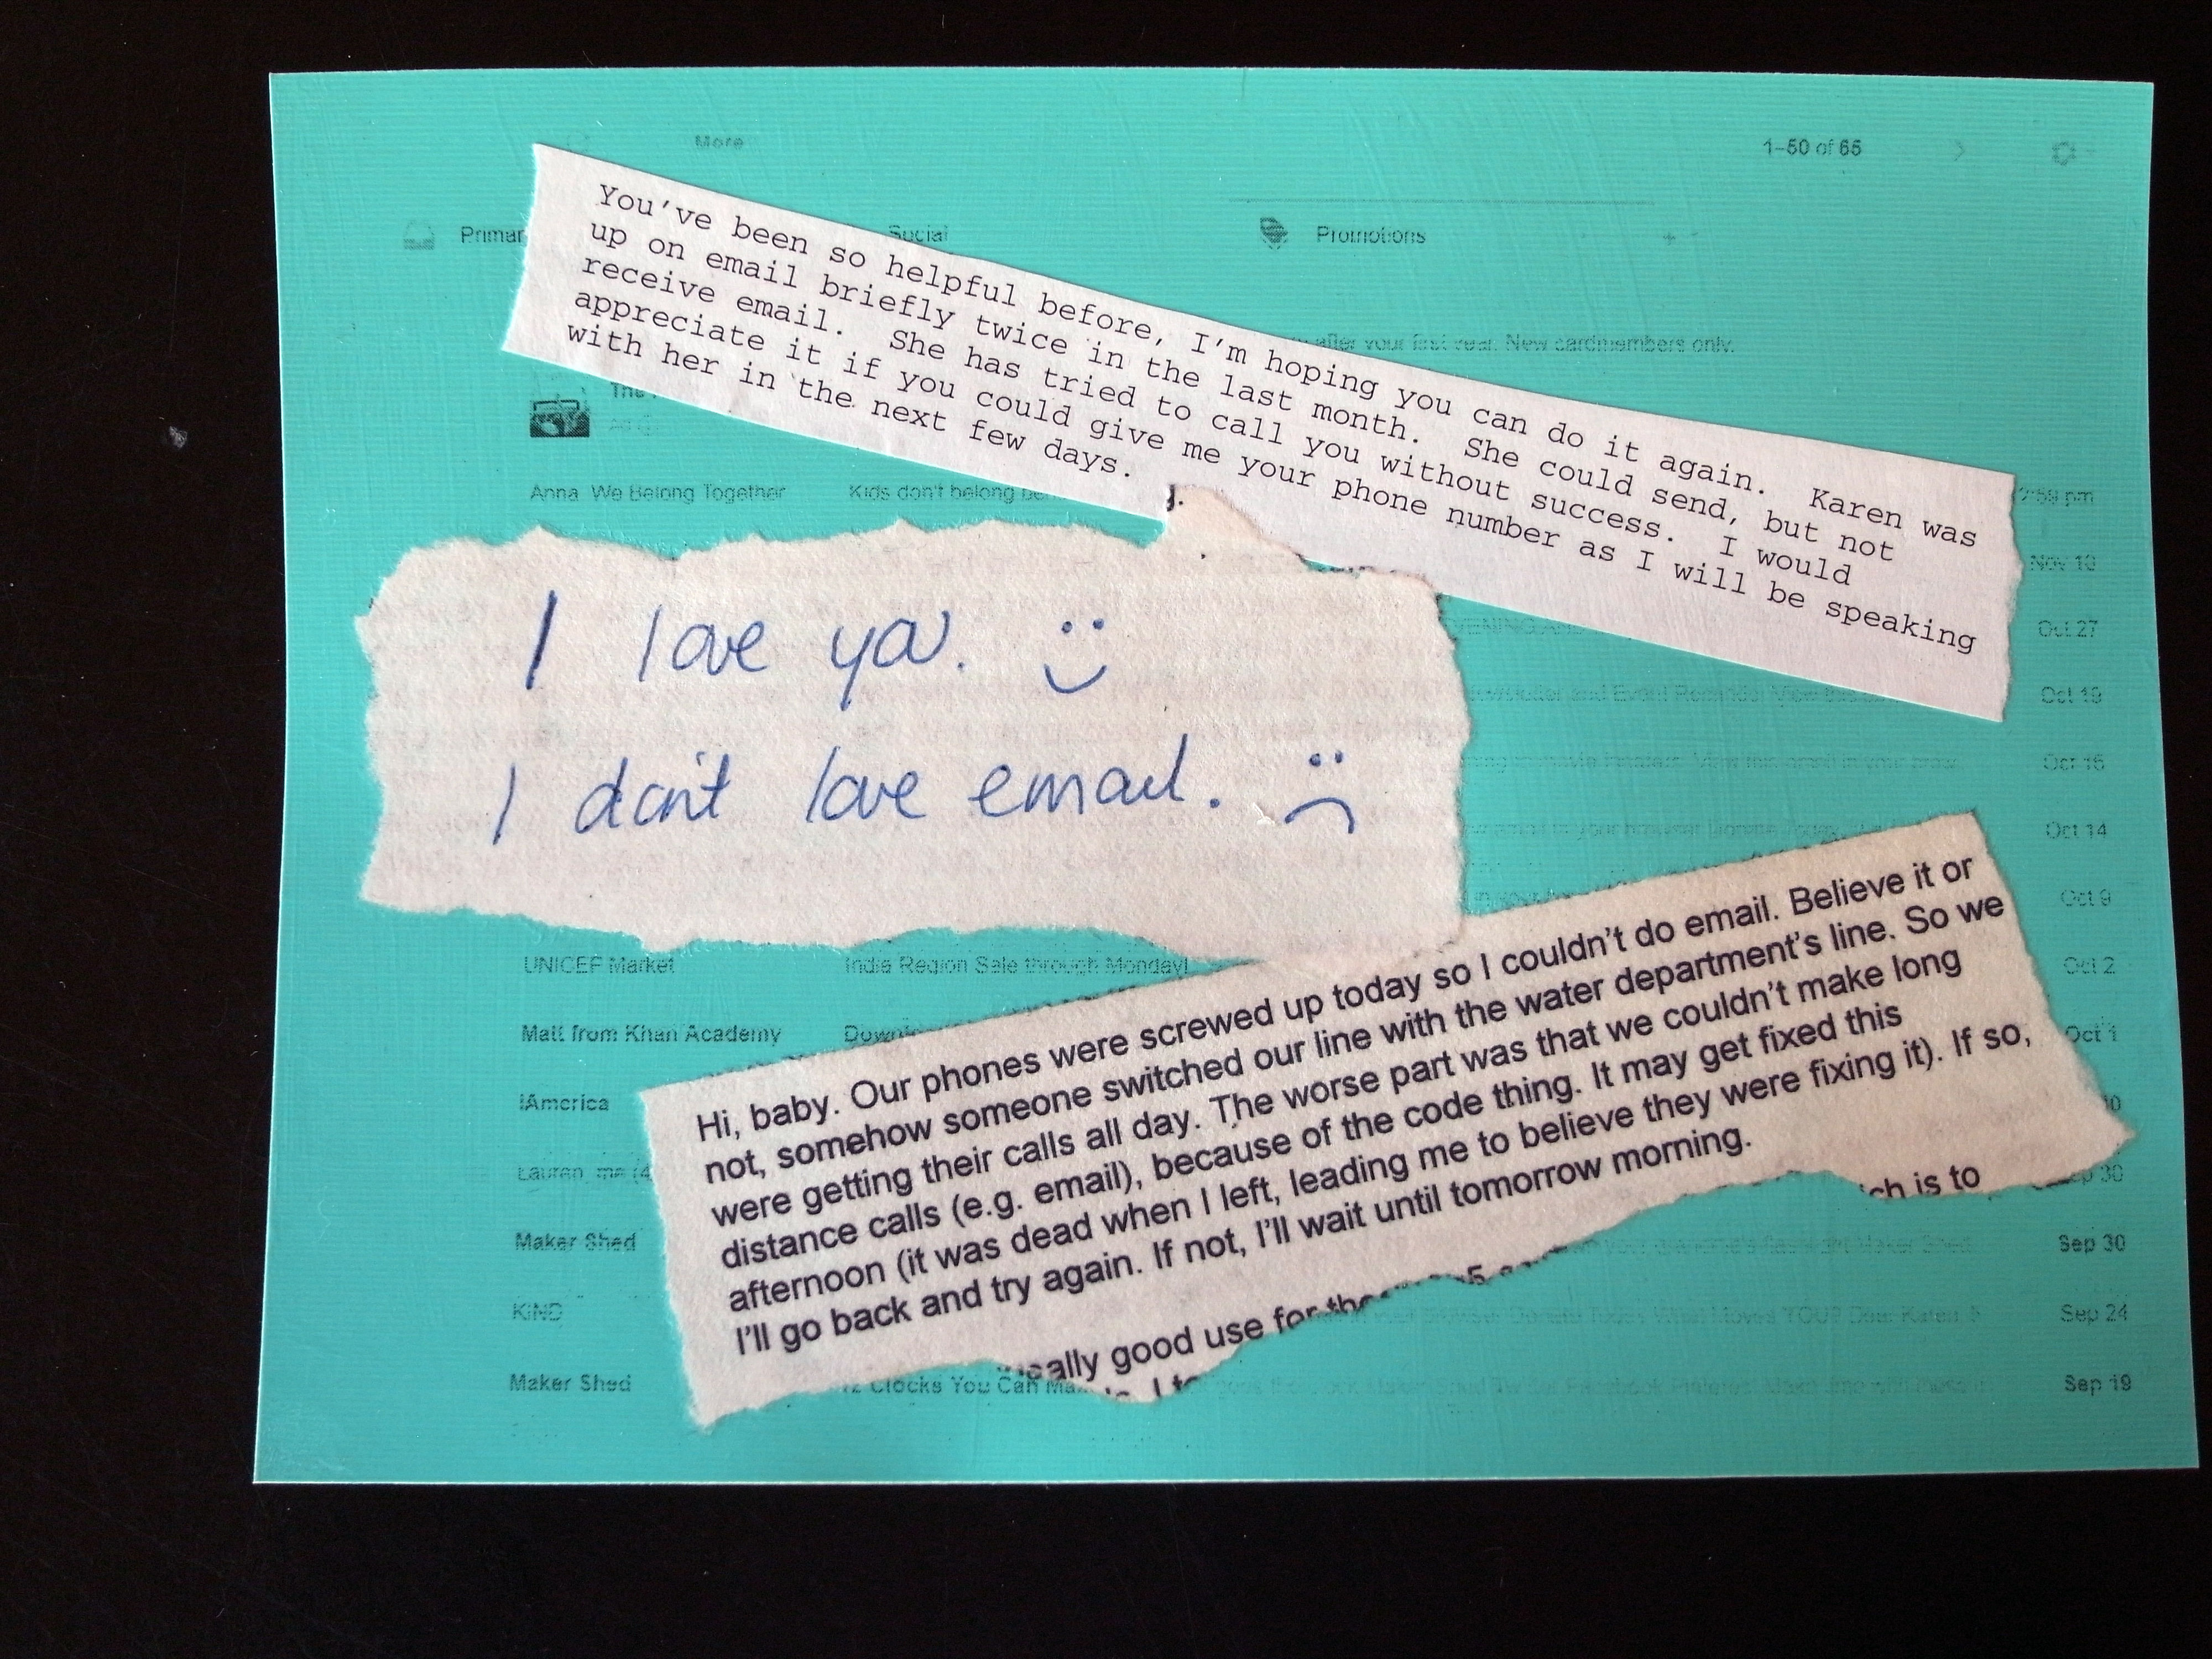 More
1-50 of 65
Social
Promotions
after your first year. New cardmembers only.
You've been so helpful before, I'm hoping you can do it again. Karen was
up on email briefly twice in the last month. She could send, but not
receive email. She has tried to call you without success. I would
appreciate it if you could give me your phone number as I will be speaking
with her in the next few days.
Anna We Belong Together
Kids don't belong
Oct 27
Oct 19
I love you. :)
I don't love email. :(
Oct 14
Oct 9
UNICEF Market
India Region Sale through Monday!
Oct 2
Matt from Khan Academy
Oct 1
iAmerica
Hi, baby. Our phones were screwed up today so I couldn't do email. Believe it or
not, somehow someone switched our line with the water department's line. So we
were getting their calls all day. The worse part was that we couldn't make long
distance calls (e.g. email), because of the code thing. It may get fixed this
afternoon (it was dead when I left, leading me to believe they were fixing it). If so,
I'll go back and try again. If not, I'll wait until tomorrow morning.
is to
good use for
Maker Shed
Sep 30
KIND
Sep 24
Maker Shed
12 Clocks You Can
Sep 19